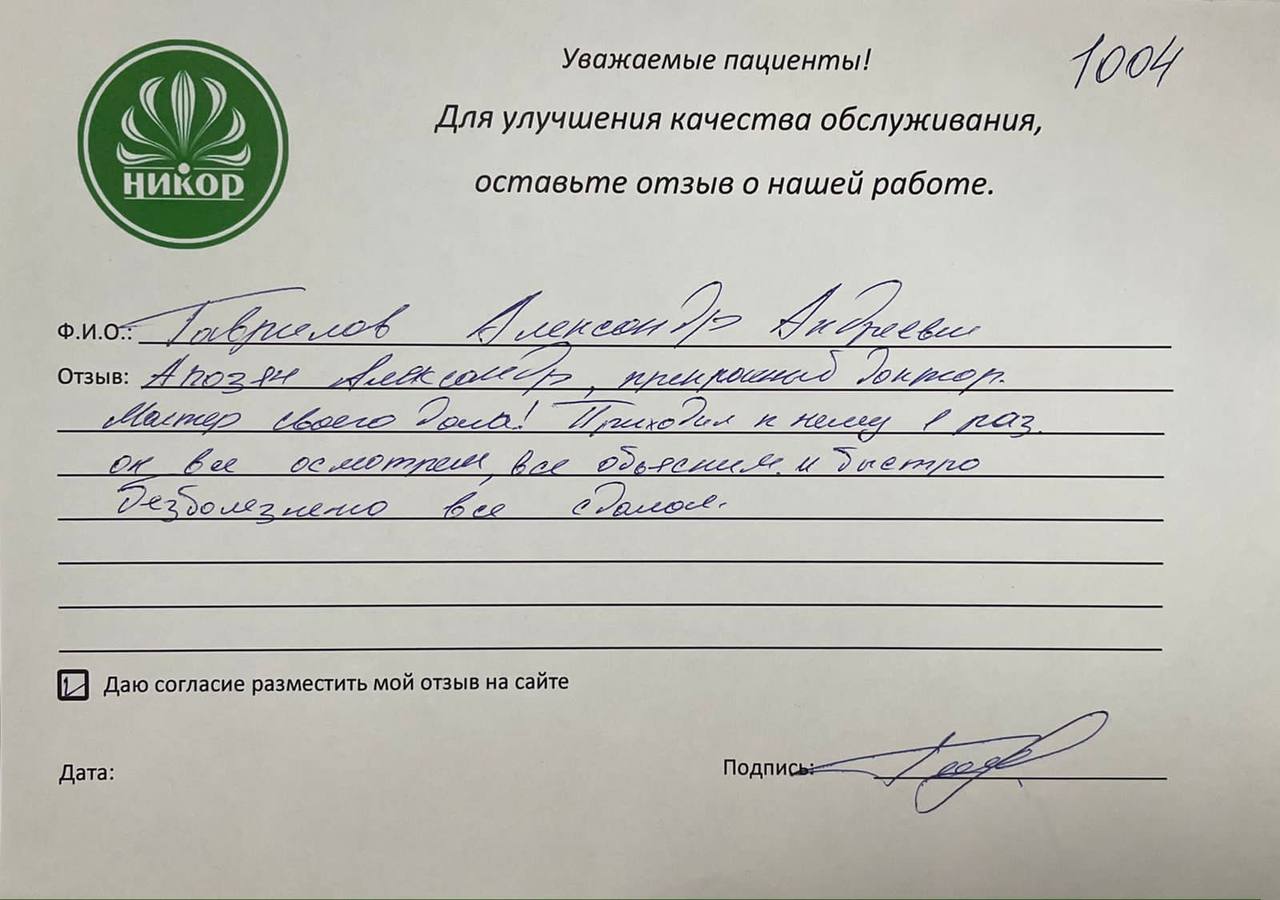 Уважаемые пациенты!
1004
Для улучшения качества обслуживания,
оставьте отзыв о нашей работе.
НИКОР
Ф.И.О.: Гаврилов Александр Андреевич
Отзыв: Апозян Александр, прекрасный доктор.
Мастер своего дела! Приходил к нему 1 раз.
он все осмотрел, все объяснил и быстро
безболезнено все сделал.
Даю согласие разместить мой отзыв на сайте
Дата:
Подпись: